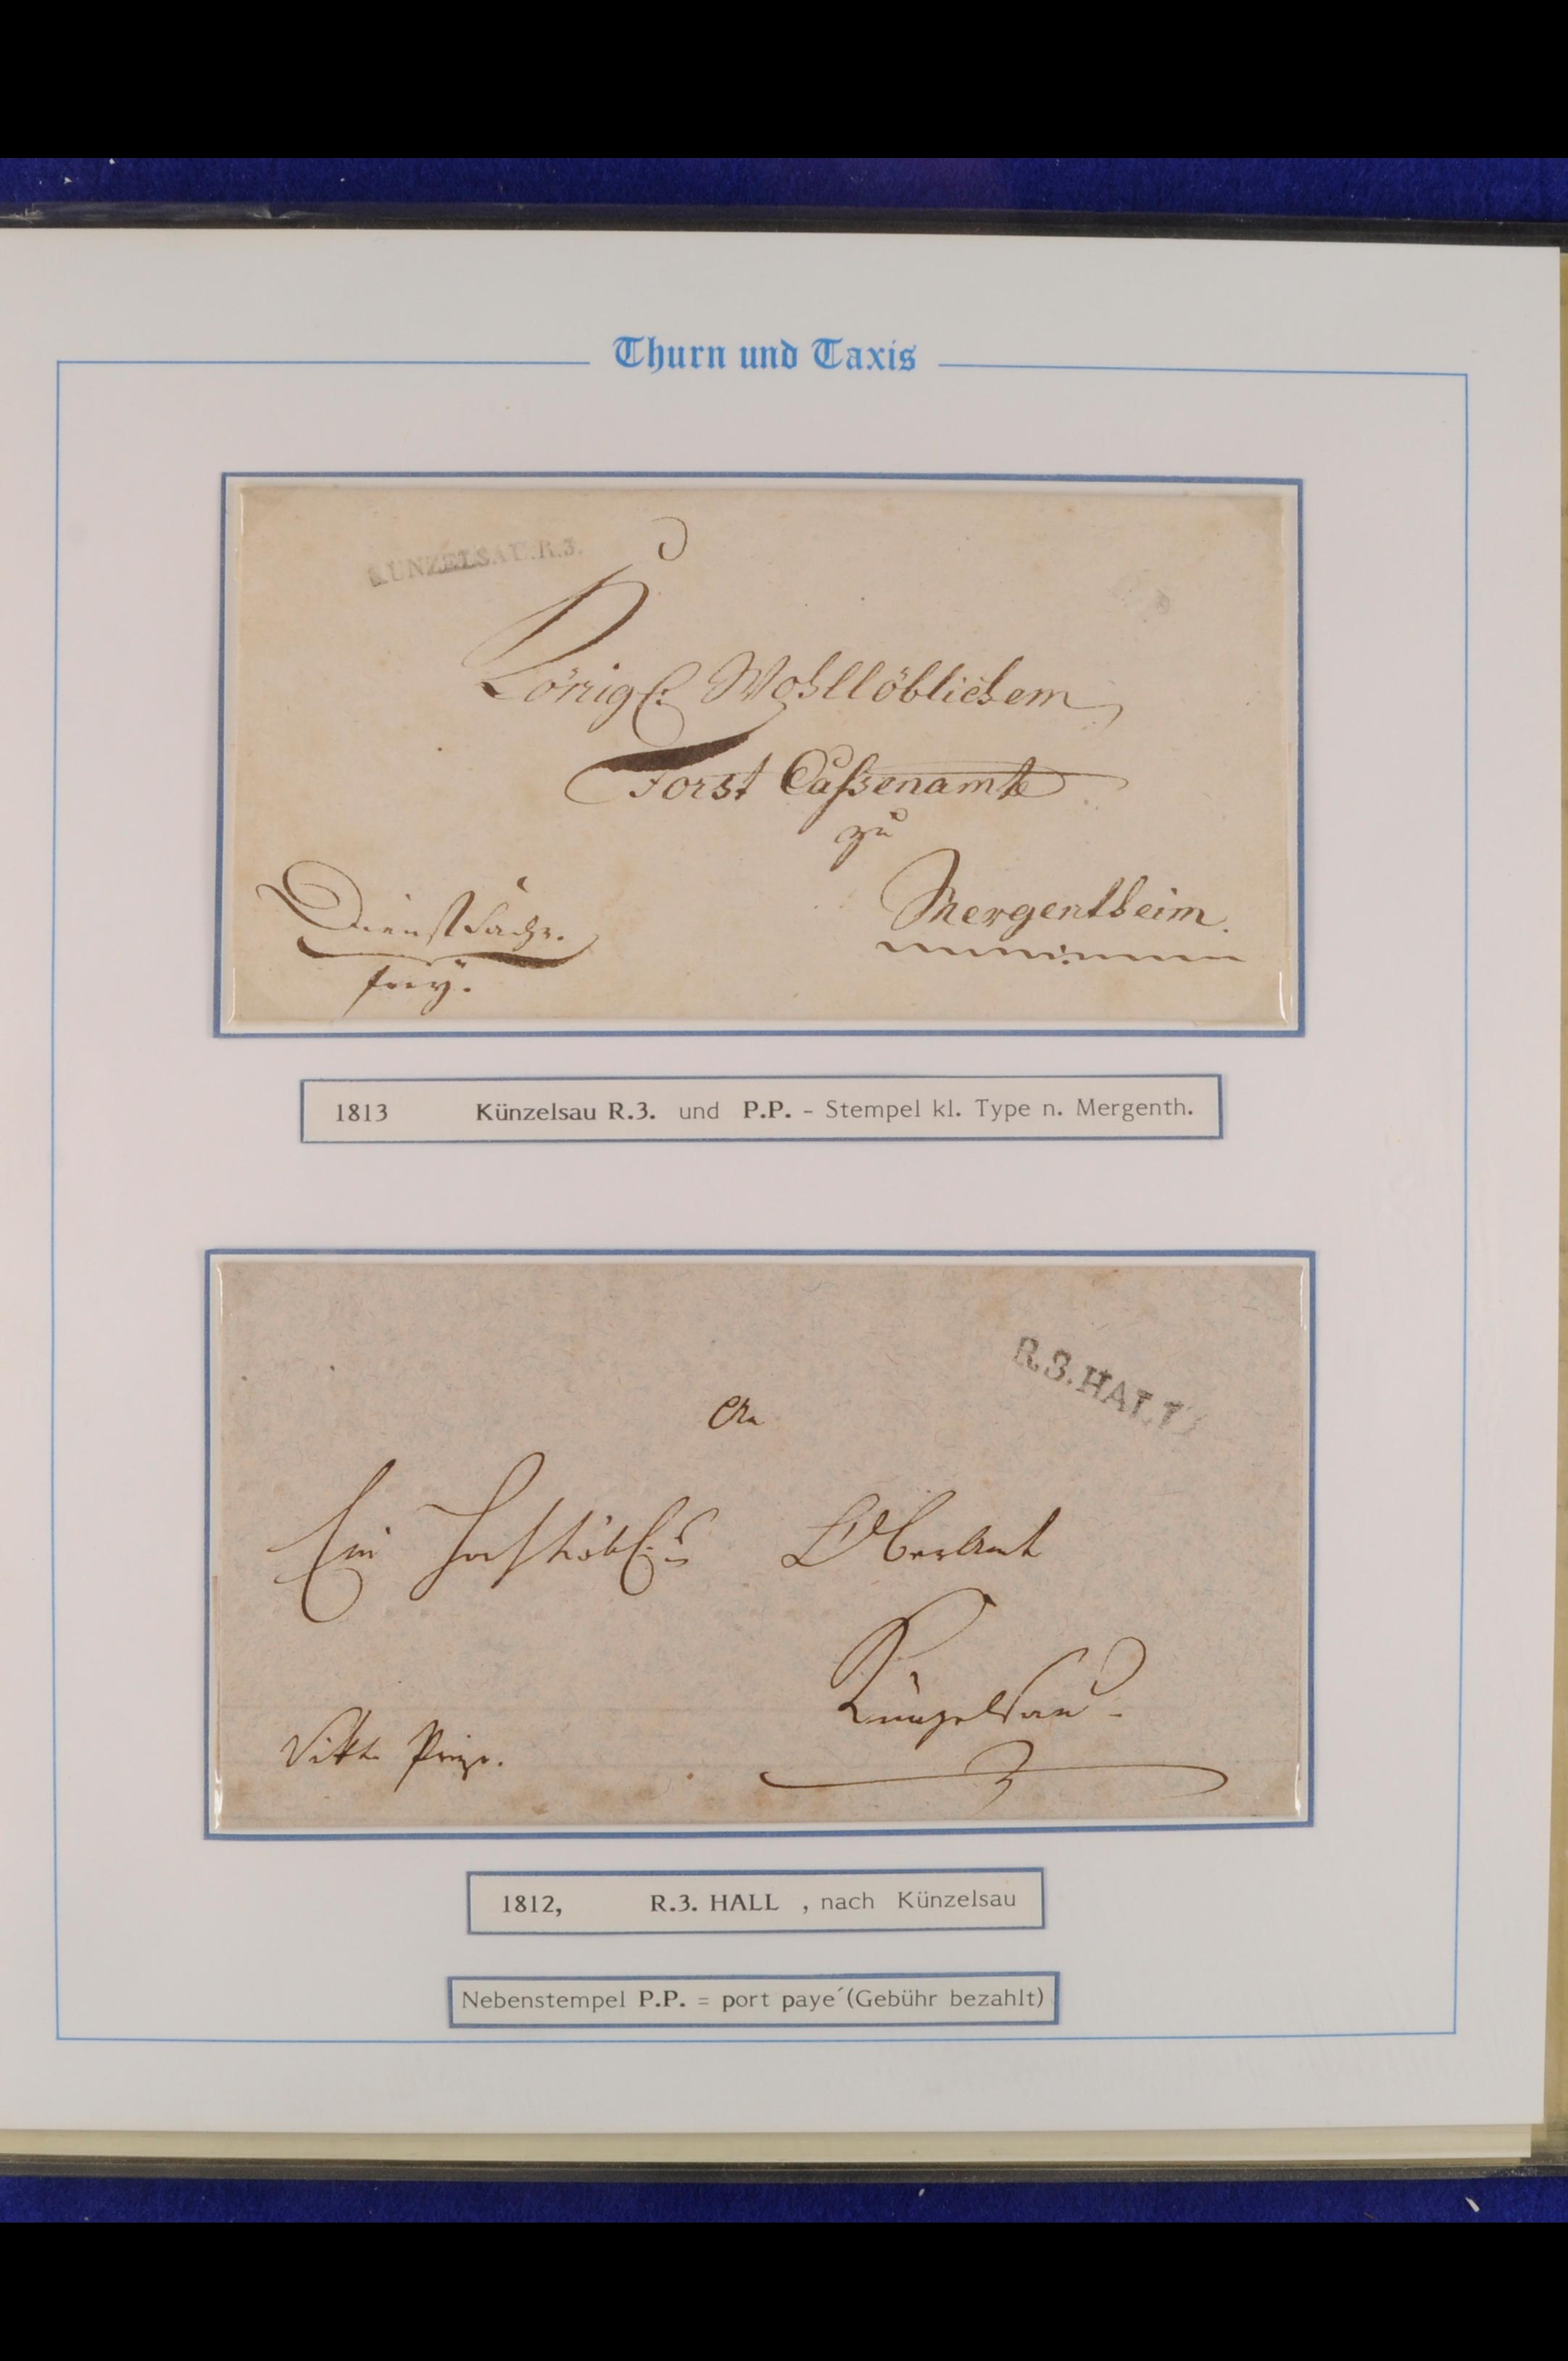 Thurn und Taxis
KÜNZELSAU.R.3.
Königl: Wohllöblichem
Forst Cassenamte
zu
Mergentheim.
Dienst Sache.
frey.
1813 Künzelsau R.3. und P.P. - Stempel kl. Type n. Mergenth.
R.3.HALL
An
Ein OberAmt
Künzelsau.
1812, R.3. HALL , nach Künzelsau
Nebenstempel P.P. = port paye´(Gebühr bezahlt)